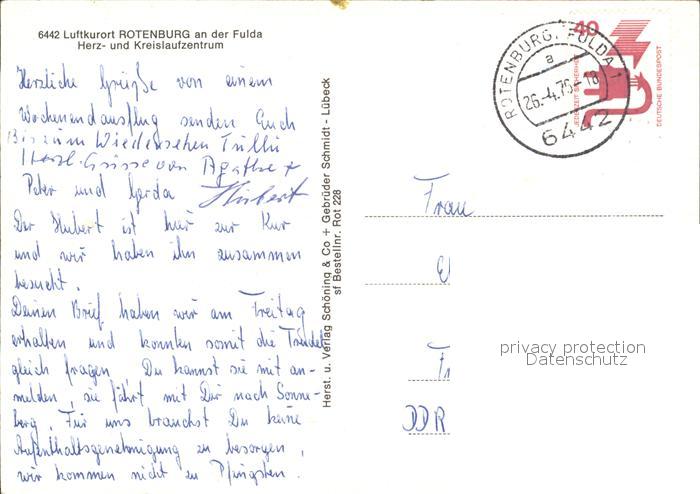 6442 Luftkurort ROTENBURG an der Fulda
Herz- und Kreislaufzentrum
Herzliche Grüße von einem
Wochenendausflug senden Euch
Bis zum Wiedersehen
Herzl. Grüsse von Agathe +
Peter und Gerda Hubert
Der Hubert ist hier zur Kur
und wir haben ihn zusammen
besucht.
Deinen Brief haben wir am Freitag
erhalten und konnten somit die Trudel
gleich fragen. Du kannst sie mit an-
melden, sie fährt mit Dir nach Sonne-
berg. Für uns brauchst Du keine
Aufenthaltsgenehmigung zu besorgen,
wir kommen nicht zu Pfingsten.
Herst. u. Verlag Schöning & Co + Gebrüder Schmidt - Lübeck
sf Bestellnr. Rot 228
40
JEDERZEIT SICHERHEIT
DEUTSCHE BUNDESPOST
ROTENBURG, FULDA 1
a
26.-4.76-18
6442
Frau
DDR
privacy protection
Datenschutz